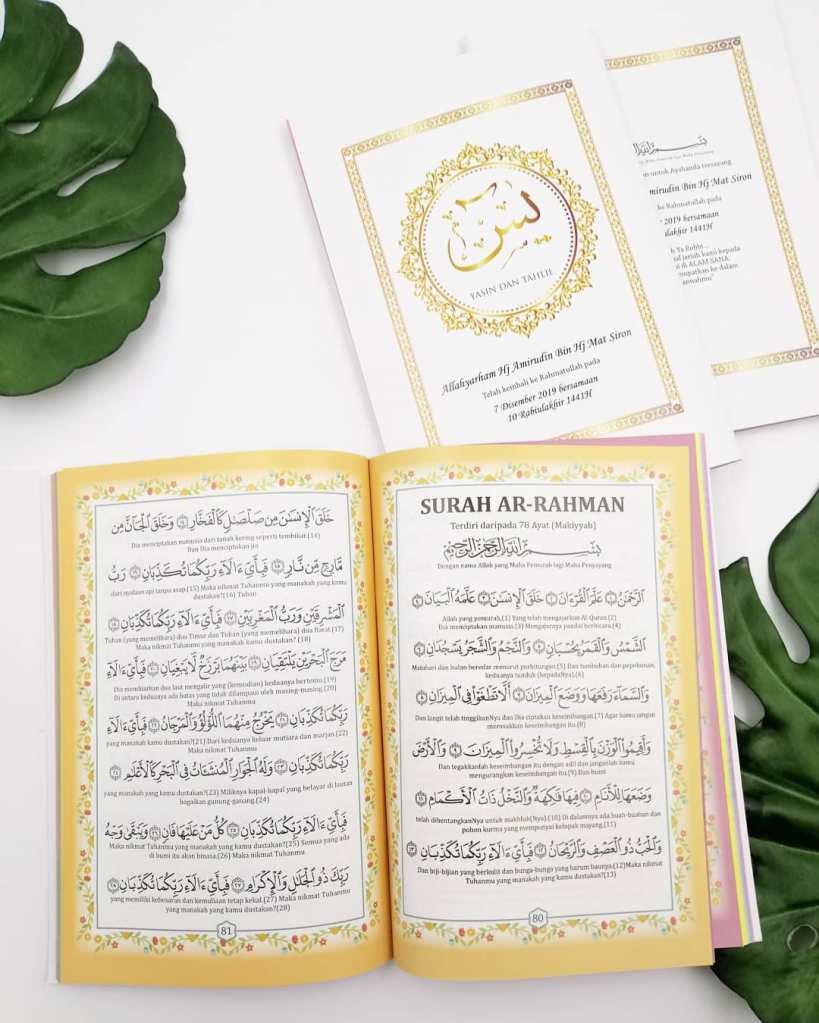 يس
YASIN DAN TAHLIL
Allahyarham Hj Amirudin Bin Hj Mat Siron
Telah kembali ke Rahmatullah pada
7 Disember 2019 bersamaan
10 Rabiulakhir 1441H
untuk Ayahanda tersayang
Amirudin Bin Hj Mat Siron
ke Rahmatullah pada
2019 bersamaan
1441H
Ya Robbi...
jariah kami kepada
di ALAM SANA.
ke dalam
SURAH AR-RAHMAN
Terdiri daripada 78 Ayat (Makiyyah)
بِسْمِ اللَّهِ الرَّحْمَٰنِ الرَّحِيمِ
Dengan nama Allah yang Maha Pemurah lagi Maha Penyayang
ٱلرَّحْمَٰنُ ۝١ عَلَّمَ ٱلْقُرْءَانَ ۝٢ خَلَقَ ٱلْإِنسَٰنَ ۝٣ عَلَّمَهُ ٱلْبَيَانَ ۝٤
Allah yang pemurah,(1) Yang telah mengajarkan Al Quran.(2)
Dia menciptakan manusia.(3) Mengajarnya pandai berbicara.(4)
ٱلشَّمْسُ وَٱلْقَمَرُ بِحُسْبَانٍ ۝٥ وَٱلنَّجْمُ وَٱلشَّجَرُ يَسْجُدَانِ ۝٦
Matahari dan bulan beredar menurut perhitungan.(5) Dan tumbuhan dan pepohonan,
keduanya tunduk (kepadaNya).(6)
وَٱلسَّمَآءَ رَفَعَهَا وَوَضَعَ ٱلْمِيزَانَ ۝٧ أَلَّا تَطْغَوْا۟ فِى ٱلْمِيزَانِ ۝٨
Dan langit telah tinggikanNya dan Dia ciptakan keseimbangan.(7) Agar kamu jangan
merosakkan keseimbangan itu.(8)
وَأَقِيمُوا۟ ٱلْوَزْنَ بِٱلْقِسْطِ وَلَا تُخْسِرُوا۟ ٱلْمِيزَانَ ۝٩ وَٱلْأَرْضَ
Dan tegakkanlah keseimbangan itu dengan adil dan janganlah kamu
mengurangkan keseimbangan itu.(9) Dan bumi
وَضَعَهَا لِلْأَنَامِ ۝١٠ فِيهَا فَٰكِهَةٌ وَٱلنَّخْلُ ذَاتُ ٱلْأَكْمَامِ ۝١١
telah dibentangkanNya untuk makhluk(Nya).(10) Di dalamnya ada buah-buahan dan
pohon kurma yang mempunyai kelopak mayang.(11)
وَٱلْحَبُّ ذُو ٱلْعَصْفِ وَٱلرَّيْحَانُ ۝١٢ فَبِأَىِّ ءَالَآءِ رَبِّكُمَا تُكَذِّبَانِ ۝١٣
Dan biji-bijian yang berkulit dan bunga-bunga yang harum baunya.(12)Maka nikmat
Tuhanmu yang manakah yang kamu dustakan?(13)
80
خَلَقَ ٱلْإِنسَٰنَ مِن صَلْصَٰلٍ كَٱلْفَخَّارِ ۝١٤ وَخَلَقَ ٱلْجَآنَّ مِن
Dia menciptakan manusia dari tanah kering seperti tembikar.(14)
Dan Dia menciptakan jin
مَّارِجٍ مِّن نَّارٍ ۝١٥ فَبِأَىِّ ءَالَآءِ رَبِّكُمَا تُكَذِّبَانِ ۝١٦ رَبُّ
dari nyalaan api tanpa asap.(15) Maka nikmat Tuhanmu yang manakah yang kamu
dustakan?(16) Tuhan
ٱلْمَشْرِقَيْنِ وَرَبُّ ٱلْمَغْرِبَيْنِ ۝١٧ فَبِأَىِّ ءَالَآءِ رَبِّكُمَا تُكَذِّبَانِ ۝١٨
Tuhan (yang memelihara) dua Timur dan Tuhan (yang memelihara) dua Barat.(17)
Maka nikmat Tuhanmu yang manakah yang kamu dustakan? (18)
مَرَجَ ٱلْبَحْرَيْنِ يَلْتَقِيَانِ ۝١٩ بَيْنَهُمَا بَرْزَخٌ لَّا يَبْغِيَانِ ۝٢٠ فَبِأَىِّ ءَالَآءِ
Dia membiarkan dua laut mengalir yang (kemudian) keduanya bertemu.(19)
Di antara keduanya ada batas yang tidak dilampaui oleh masing-masing.(20)
Maka nikmat Tuhanmu
رَبِّكُمَا تُكَذِّبَانِ ۝٢١ يَخْرُجُ مِنْهُمَا ٱللُّؤْلُؤُ وَٱلْمَرْجَانُ ۝٢٢ فَبِأَىِّ ءَالَآءِ
yang manakah yang kamu dustakan?(21) Dari keduanya keluar mutiara dan marjan.(22)
Maka nikmat Tuhanmu
رَبِّكُمَا تُكَذِّبَانِ ۝٢٣ وَلَهُ ٱلْجَوَارِ ٱلْمُنشَـَٔاتُ فِى ٱلْبَحْرِ كَٱلْأَعْلَٰمِ ۝٢٤
yang manakah yang kamu dustakan?(23) Miliknya kapal-kapal yang belayar di lautan
bagaikan gunung-ganang.(24)
فَبِأَىِّ ءَالَآءِ رَبِّكُمَا تُكَذِّبَانِ ۝٢٥ كُلُّ مَنْ عَلَيْهَا فَانٍ ۝٢٦ وَيَبْقَىٰ وَجْهُ
Maka nikmat Tuhanmu yang manakah yang kamu dustakan?(25) Semua yang ada
di bumi itu akan binasa.(26) Maka nikmat Tuhanmu
رَبِّكَ ذُو ٱلْجَلَٰلِ وَٱلْإِكْرَامِ ۝٢٧ فَبِأَىِّ ءَالَآءِ رَبِّكُمَا تُكَذِّبَانِ ۝٢٨
yang memiliki kebesaran dan kemuliaan tetap kekal.(27) Maka nikmat Tuhanmu
yang manakah yang kamu dustakan?(28)
81